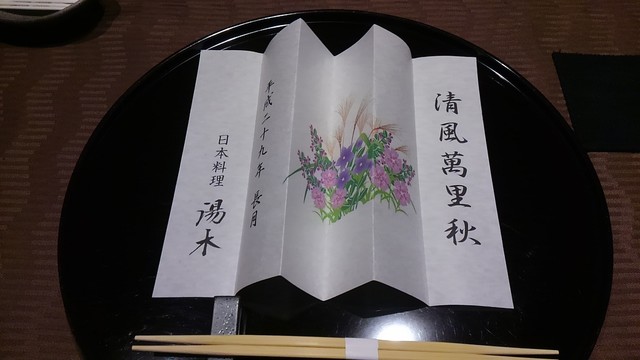 清風萬里秋
平成二十九年 長月
日本料理 湯木